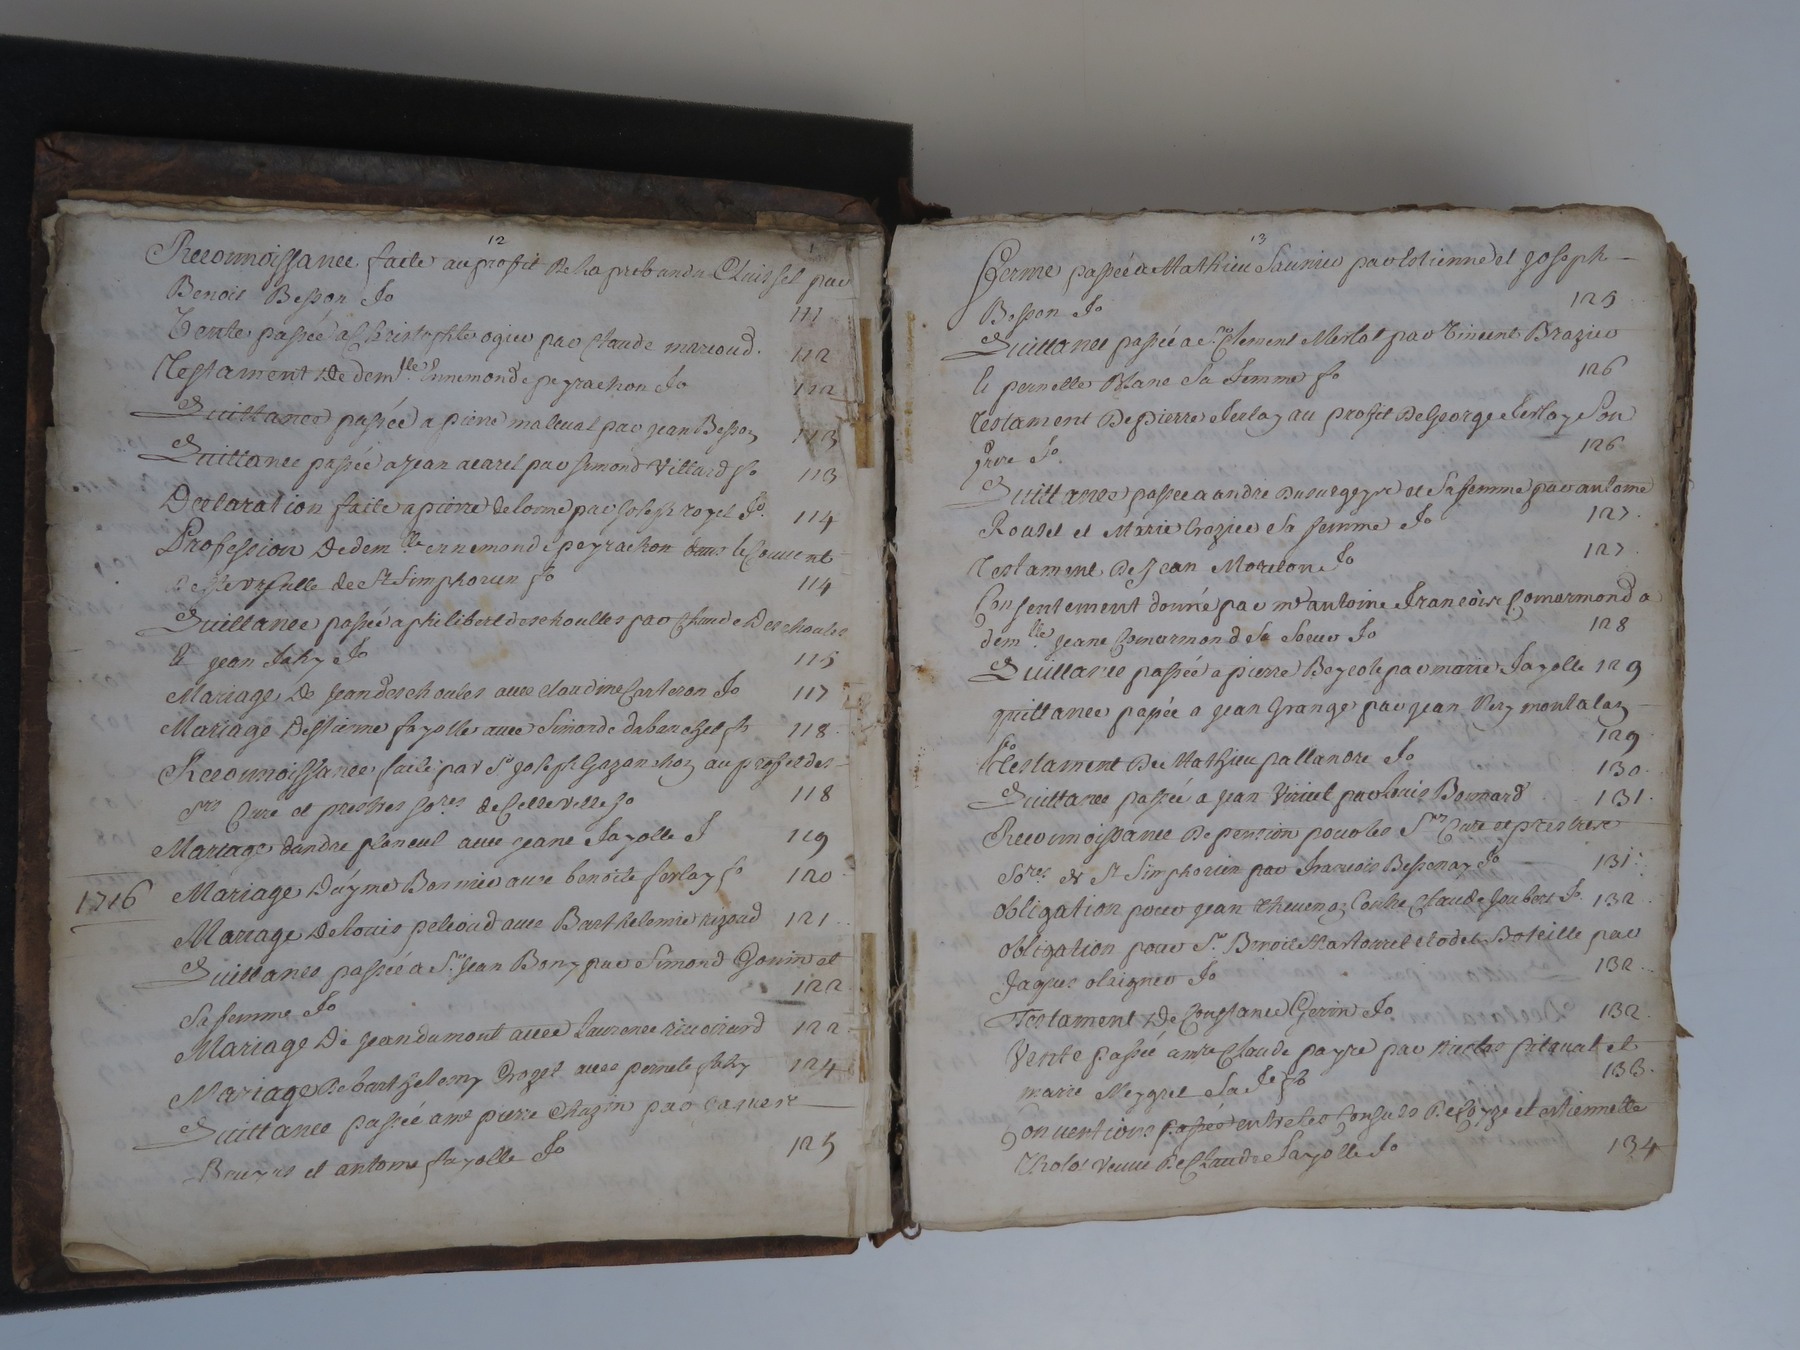 12
Reconnoissance faite au profit de la prebande Cluissel par
Benoit Besson fo 111
Vente passée a Christophle ogier par Claude marcoud. 112
Testament de demlle Ennemonde peyrachon fo 112
Quittance passée a pierre maleval par jean Besson 113
Quittance passée a jean acarel par simond Villard fo 113
Declaration faite a pierre delorme par joseph royet fo. 114
Profession de demlle ennemonde peyrachon dans le Couvent
de Ste Ursulle de St Simphorien fo 114
Quittance passée a philibert deschoulles par Claude Deschoules
& jean faky fo 115
Mariage de jean deschoules avec claudine Carteron fo 117
Mariage d'estienne fayolle avec Simonde dabanchet fo 118
Reconnoissance faite par Sr joseph Gazanchon au profit des
Srs Curé et prestres so.res de Cette ville fo 118
Mariage dandré planeul avec jeane fayolle f 119
1716 Mariage d'ayme Bonnier avec benoite ferlay fo 120
Mariage de Louis pelioud avec Barthelemie rigaud 121
Quittance passée a Sr jean Bony par Simond Gonin et
Sa femme fo 122
Mariage de jean dumont avec laurence rivoirard 122
Mariage de barthelemy Droget avec pernete faky 124
Quittance passée a mr pierre Chazin par Jaques
Bruyas et antoine fayolle fo 125
13
Ferme passée a Mathieu Saunier par Estienne et joseph
Besson fo 125
Quittance passée a Sr Clement Merlat par Vincent Brazier
& pernelle Blanc Sa femme fo 126
Testament de pierre ferlay au profit de George ferlay Son
frere fo 126
Quittance passée a andré Ducurgeyre et Sa femme par antoine
Rouset et Marie Crozier Sa femme fo 127
Testament de jean Morelon fo 127
Consentement donné par mr antoine francoise Comarmond a
demlle jeane Comarmond Sa Soeur fo 128
Quittance passée a pierre Beycole par marie fayolle 129
quittance passée a jean Grange par jean Rey montalan
fo 129
Testament de Mathieu pallandre fo 130
Quittance passée a jean Viricel par Louis Bonnard 131
Reconnoissance de pension pour les Srs Curé et prestres
So.res de St Simphorien par francois Bessenay fo 131
Obligation pour jean thevenon Contre Claude joubert fo 132
Obligation pour Sr Benoit Martourel et odet Boteille par
Jaques olagnier fo 132
Testament de Constance Gerin fo 132
Vente passée a mre Claude payre par
marie Meygret Sa fe fo 133
Conventions passées entre les Consuls de Coyze et estiennette
Cholot veuve de Claude fayolle fo 134